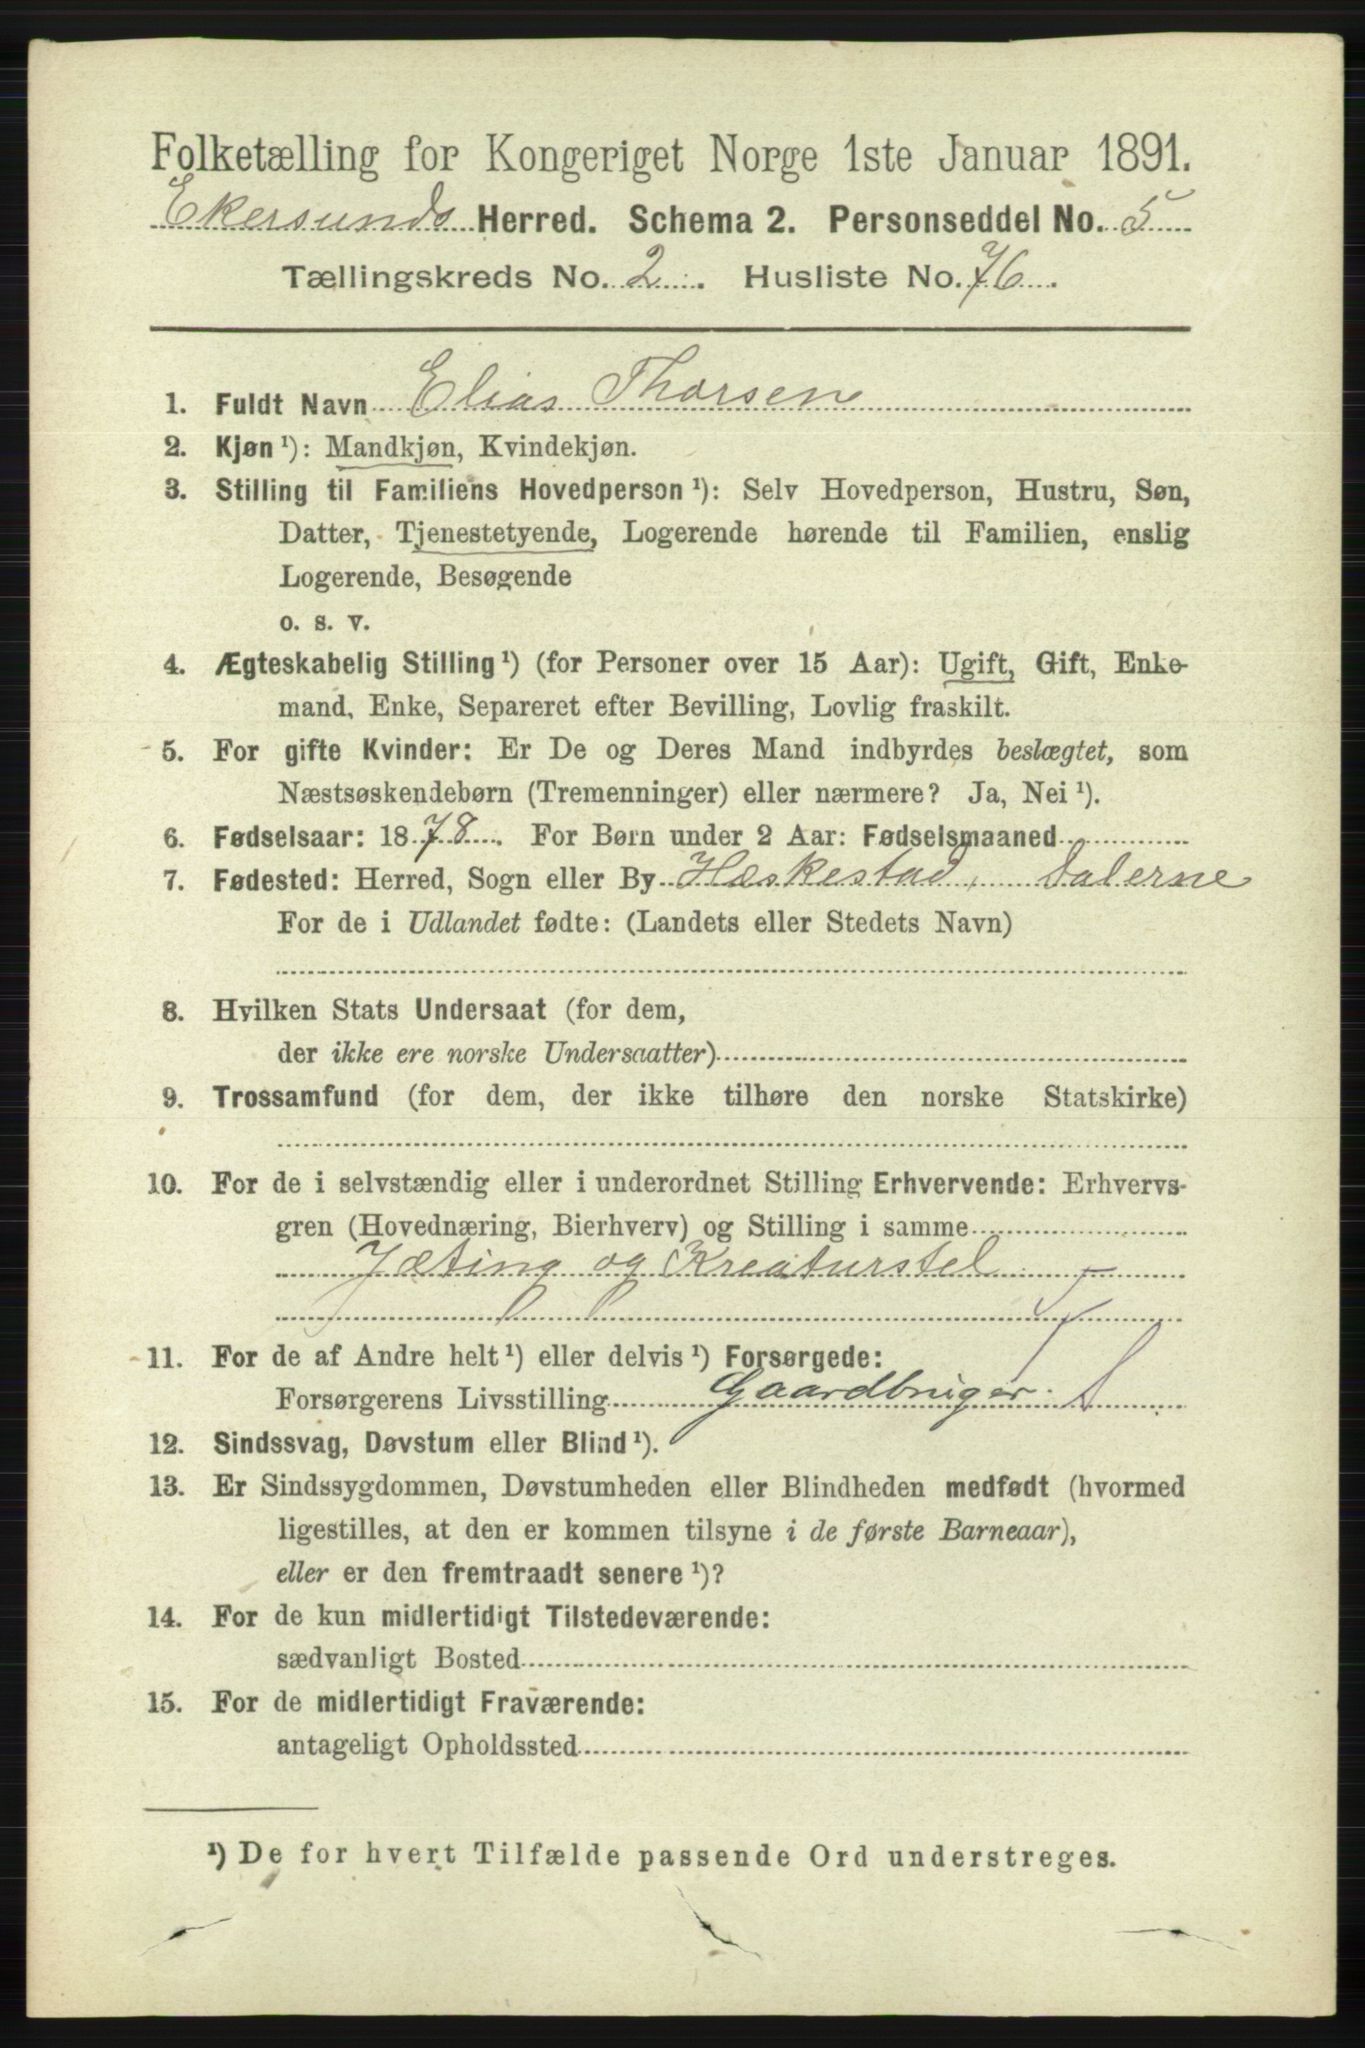 Folketælling for Kongeriget Norge 1ste Januar 1891.
Ekersunds Herred. Schema 2. Personseddel No. 5
Tællingskreds No. 2. Husliste No. 76.
1. Fuldt Navn Elias Thorsen
2. Kjøn¹): Mandkjøn, Kvindekjøn.
3. Stilling til Familiens Hovedperson¹): Selv Hovedperson, Hustru, Søn,
Datter, Tjenestetyende, Logerende hørende til Familien, enslig
Logerende, Besøgende
o. s. v.
4. Ægteskabelig Stilling¹) (for Personer over 15 Aar): Ugift, Gift, Enke-
mand, Enke, Separeret efter Bevilling, Lovlig fraskilt.
5. For gifte Kvinder: Er De og Deres Mand indbyrdes beslægtet, som
Næstsøskendebørn (Tremenninger) eller nærmere? Ja, Nei¹).
6. Fødselsaar: 1878. For Børn under 2 Aar: Fødselsmaaned
7. Fødested: Herred, Sogn eller By Hæskestad, Dalerne
For de i Udlandet fødte: (Landets eller Stedets Navn)
8. Hvilken Stats Undersaat (for dem,
der ikke ere norske Undersaatter)
9. Trossamfund (for dem, der ikke tilhøre den norske Statskirke)
10. For de i selvstændig eller i underordnet Stilling Erhvervende: Erhvervs-
gren (Hovednæring, Bierhverv) og Stilling i samme
Jæting og Kreaturstel
11. For de af Andre helt¹) eller delvis¹) Forsørgede:
Forsørgerens Livsstilling Gaardbruger.
12. Sindssvag, Døvstum eller Blind¹).
13. Er Sindssygdommen, Døvstumheden eller Blindheden medfødt (hvormed
ligestilles, at den er kommen tilsyne i de første Barneaar),
eller er den fremtraadt senere¹)?
14. For de kun midlertidigt Tilstedeværende:
sædvanligt Bosted
15. For de midlertidigt Fraværende:
antageligt Opholdssted
¹) De for hvert Tilfælde passende Ord understreges.